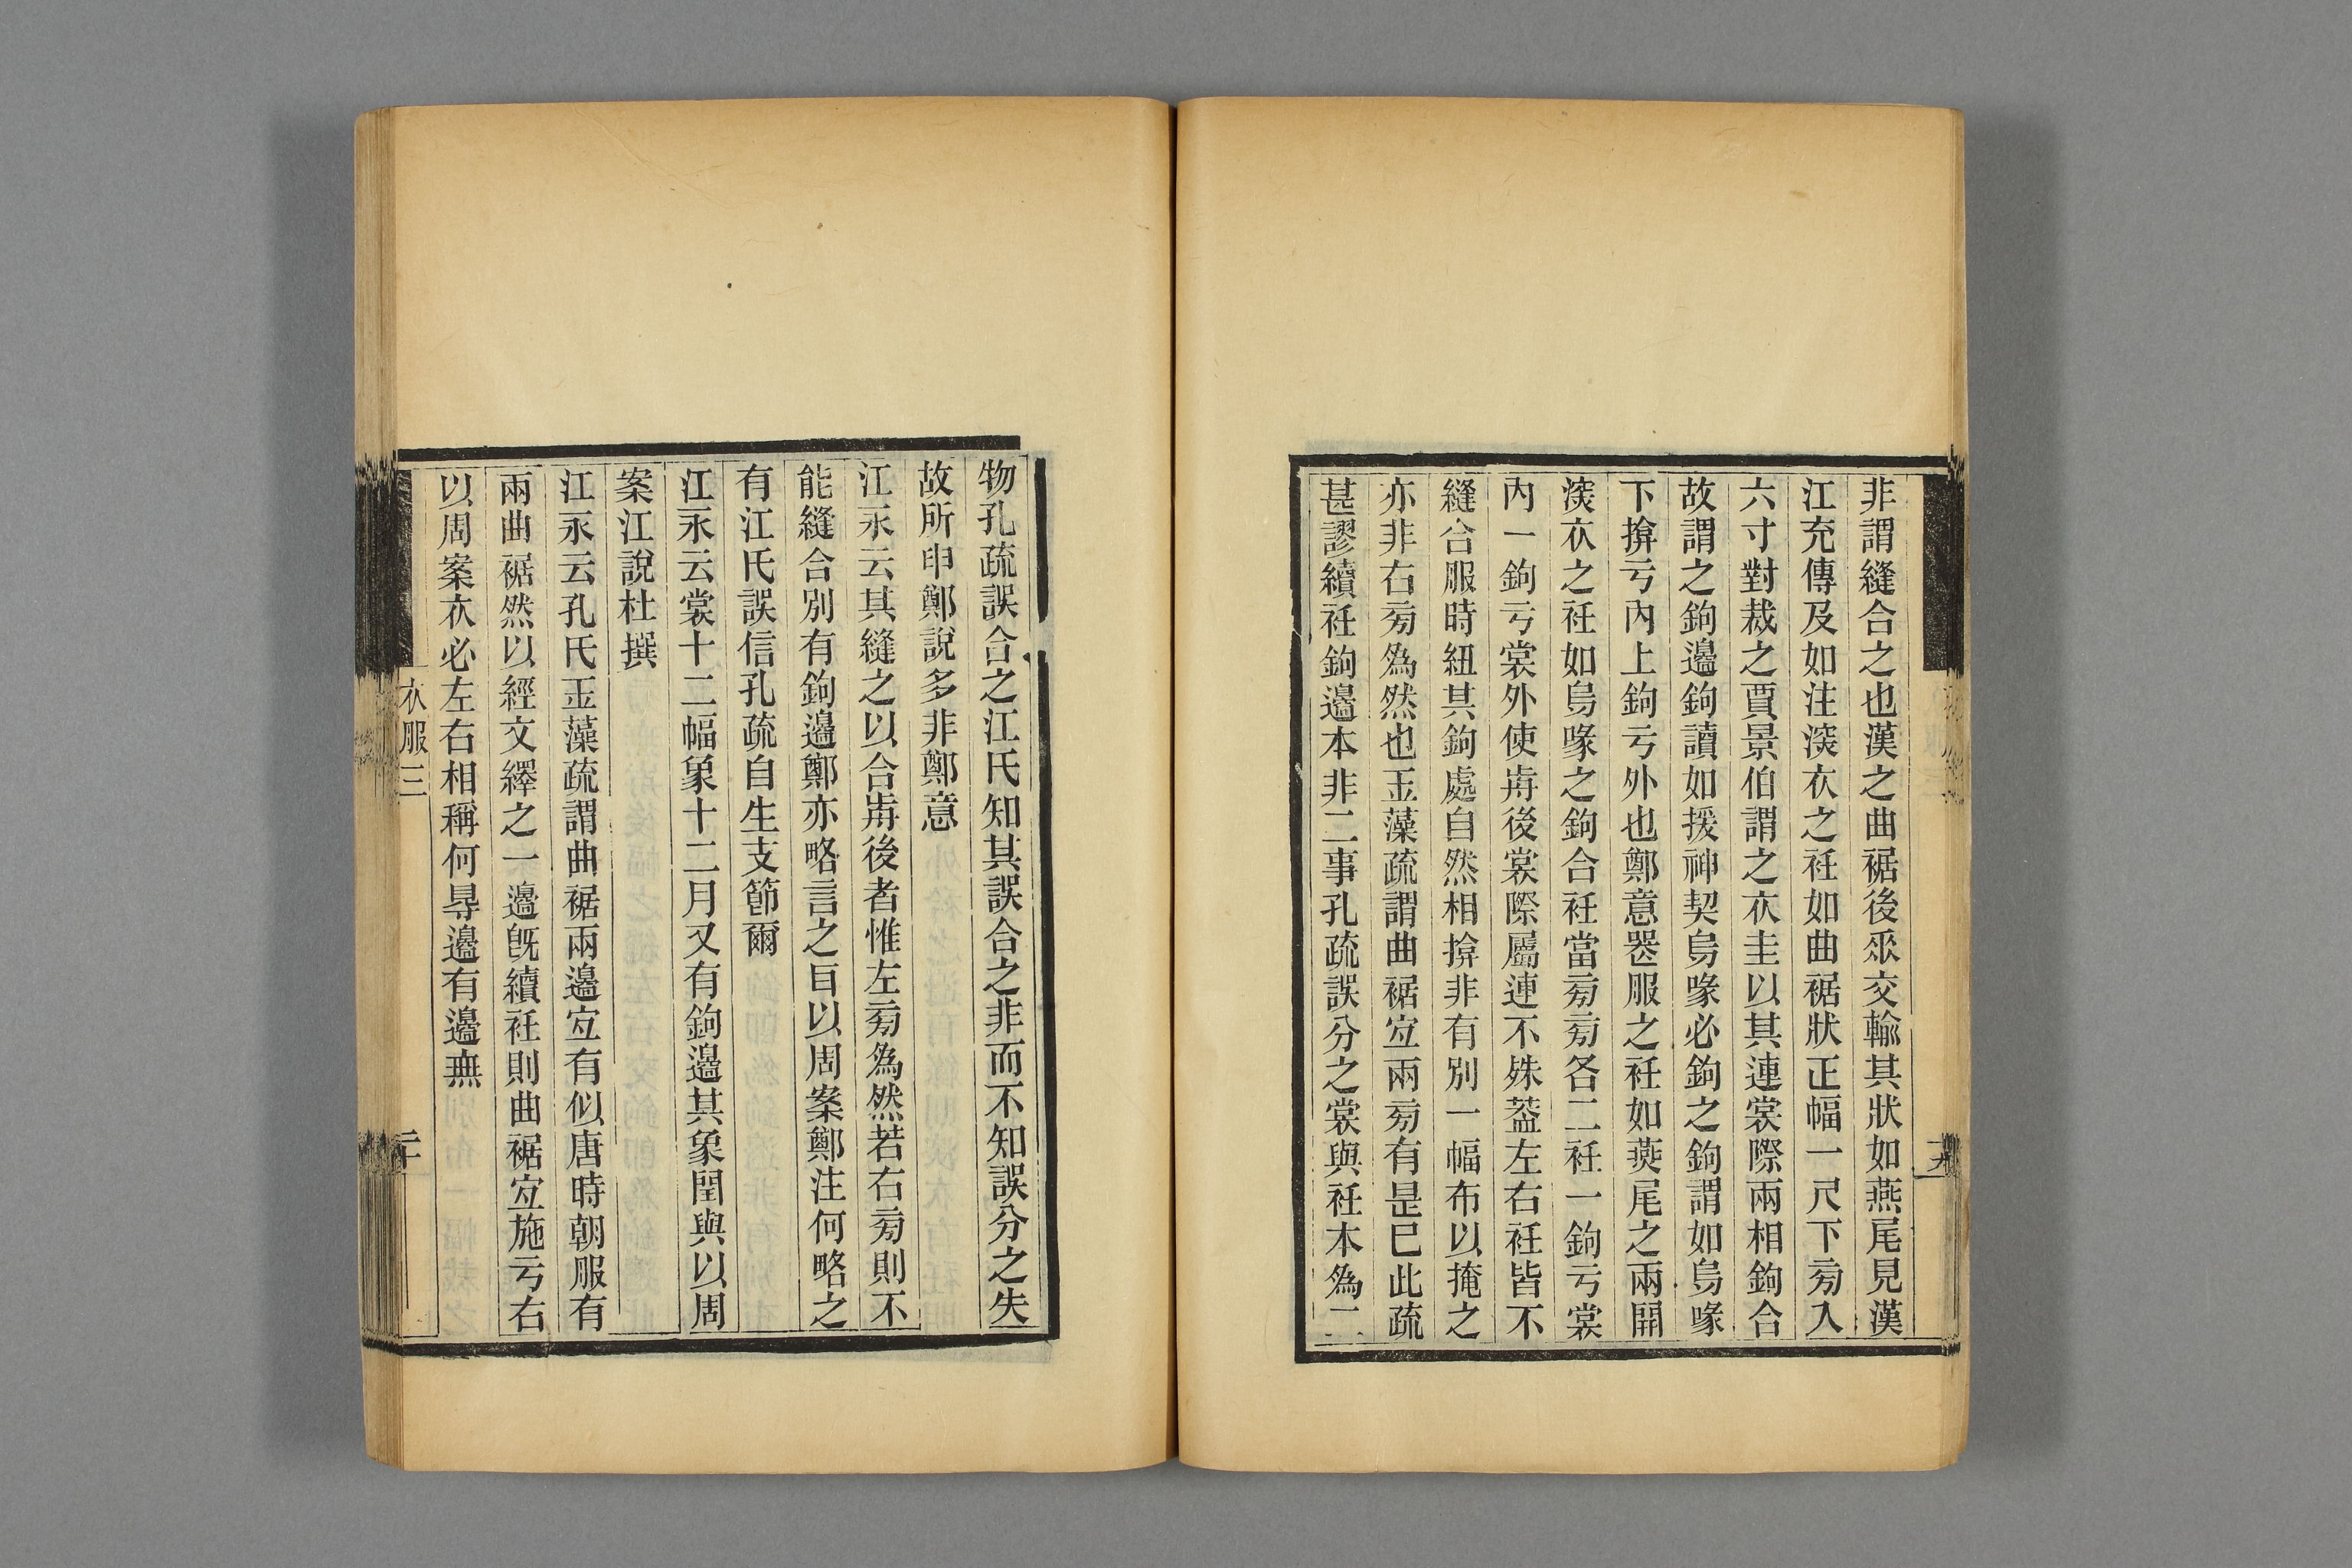 非謂縫合之也漢之曲裾後𠂹交輸其狀如燕尾見漢
江充傳及如注深衣之衽如曲裾狀正幅一尺下㫄入
六寸對裁之賈景伯謂之衣圭以其連裳際兩相鉤合
故謂之鉤邊鉤讀如援神契鳥喙必鉤之鉤謂如鳥喙
下揜亏內上鉤亏外也鄭意喪服之衽如燕尾之兩開
深衣之衽如鳥喙之鉤合衽當㫄㫄各二衽一鉤亏裳
內一鉤亏裳外使歬後裳際屬連不殊葢左右衽皆不
縫合服時紐其鉤處自然相揜非有別一幅布以掩之
亦非右㫄爲然也玉藻疏謂曲裾宜兩㫄有是已此疏
甚謬續衽鉤邊本非二事孔疏誤分之裳與衽本爲二
物孔疏誤合之江氏知其誤合之非而不知誤分之失
故所申鄭說多非鄭意
江永云其縫之以合歬後者惟左㫄爲然若右㫄則不
能縫合別有鉤邊鄭亦略言之㠯以周案鄭注何略之
有江氏誤信孔疏自生支節爾
江永云裳十二幅象十二月又有鉤邊其象閏與以周
案江說杜撰
江永云孔氏玉藻疏謂曲裾兩邊宜有似唐時朝服有
兩曲裾然以經文繹之一邊旣續衽則曲裾宜施亏右
以周案衣必左右相稱何㝵邊有邊無
衣服三
二十